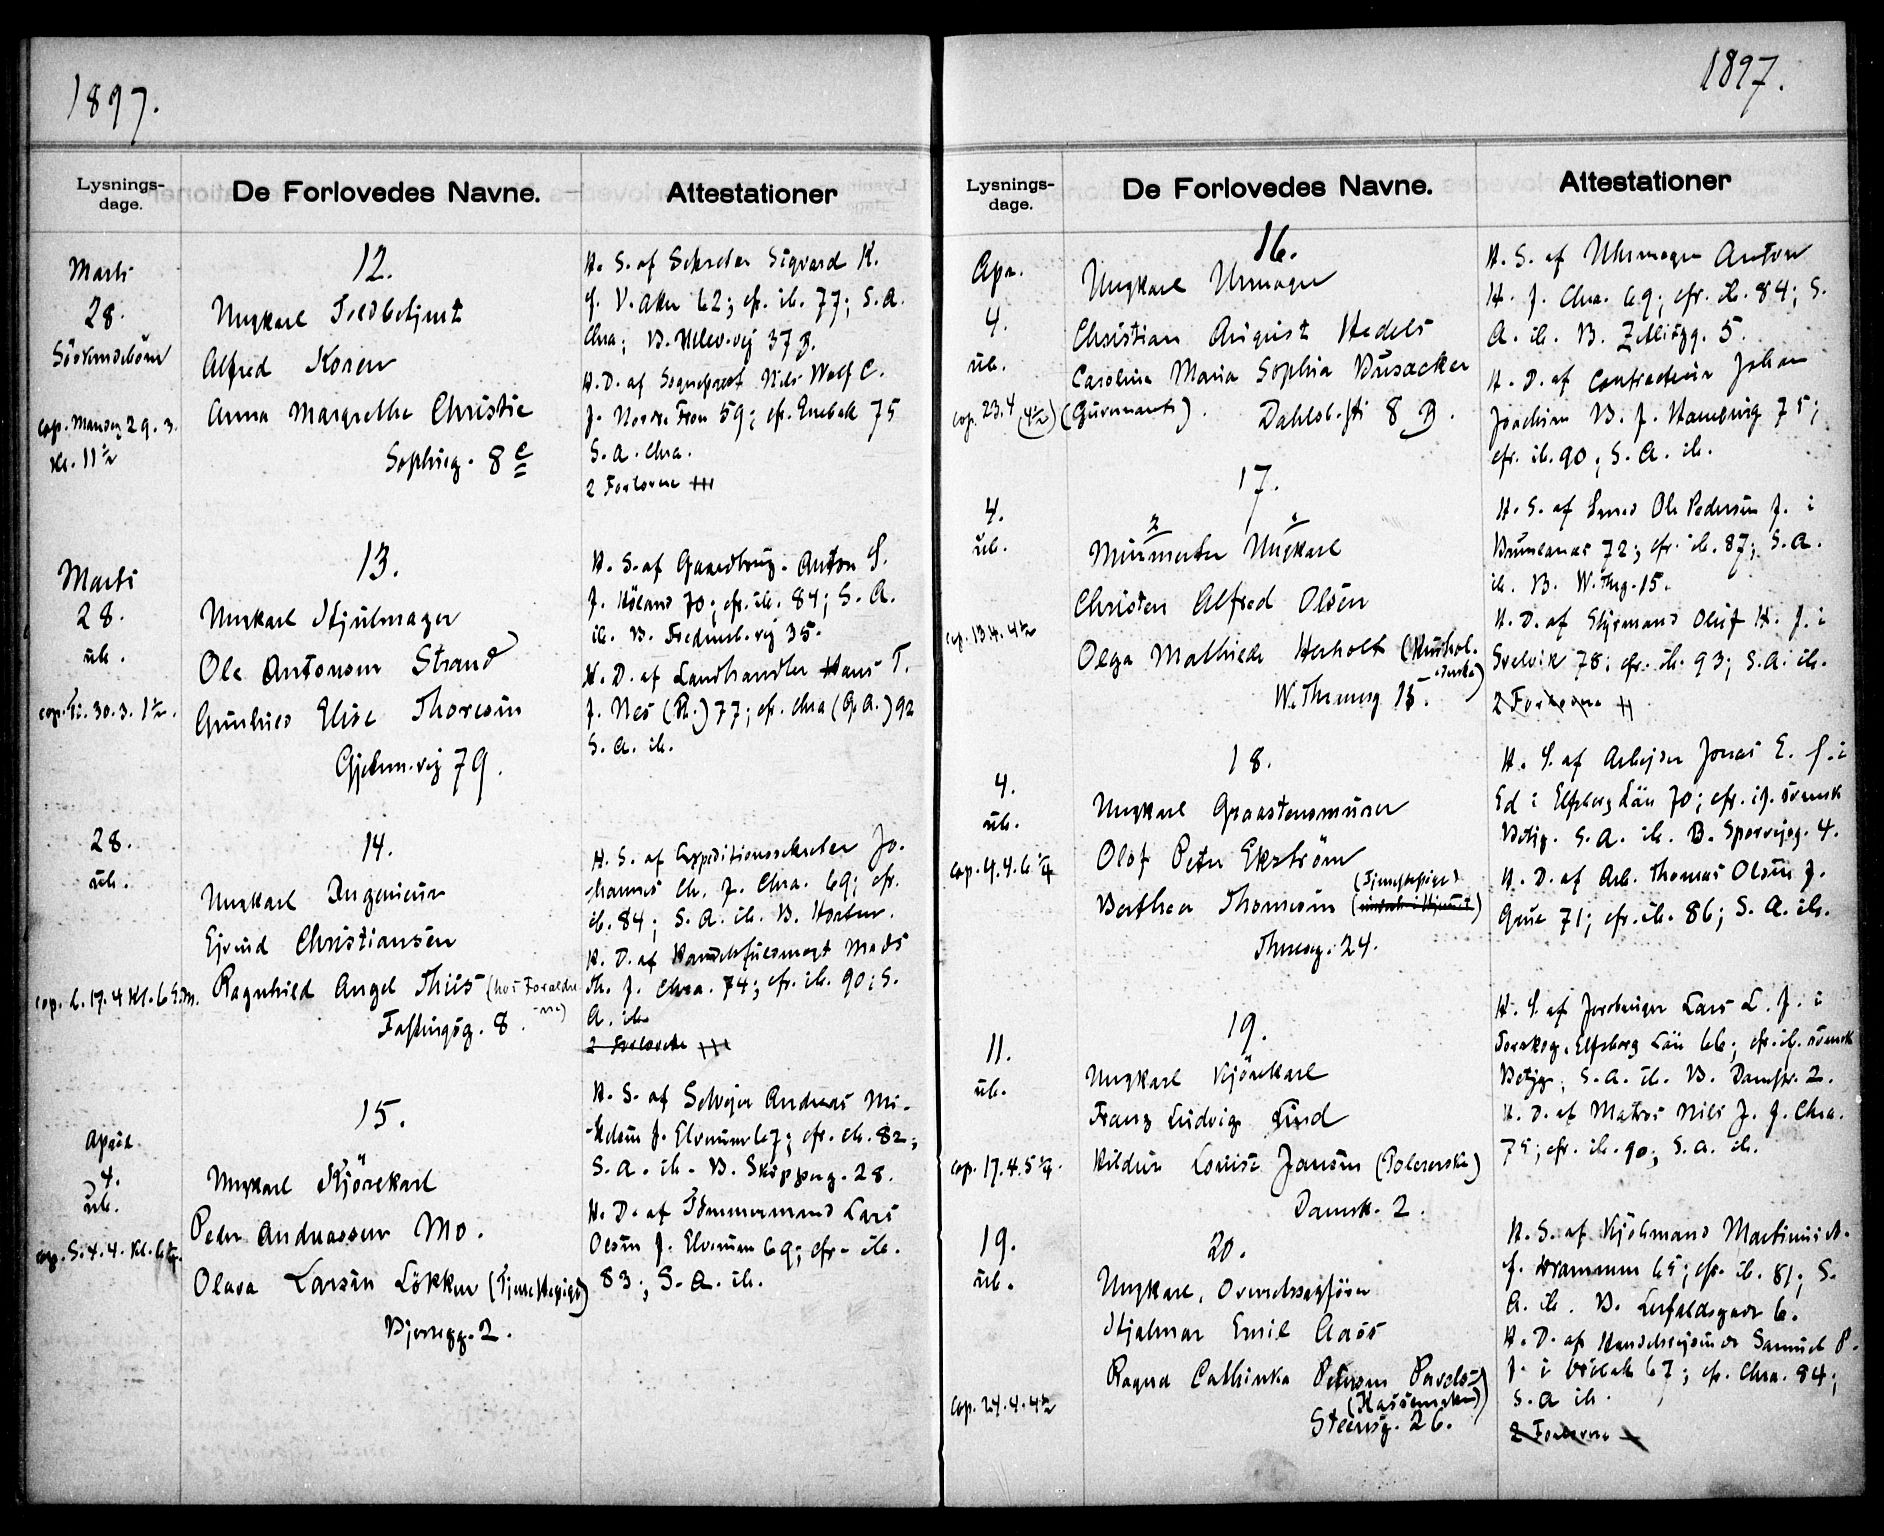 1897.
Lysnings-
dage.
De Forlovedes Navne.
Attestationer
Marts
28.
cop. Mandag 29. 3.
Kl. 11½
12.
Ungkarl
Alfred Koren
Anna Margrethe Christie
Sophieg. 8 c
H. S. af Sekretær Sigvard K.
f. V. Aker 62; cfr. ib. 77; S. A.
Chra; B. Ullev.vej 37 B.
H. D. af Sognepræst Nils Wolf C.
f. Nordre Fron 59; cfr. Enebak 75
S. A. Chra.
2 Forlovere
Marts
28.
ib.
cop. Ti. 30. 3. 1½.
13.
Ungkarl Hjulmager
Ole Antonsen Strand
Gunhild Elise Thoresen
79.
H. S. af Gaardbrug. Anton S.
f. Höland 70; cfr. ib. 84; S. A.
ib. B. vej 35.
H. D. af Landhandler Hans T.
f. Nes (R.) 77; cfr. Chra (G. A.) 92
S. A. ib.
28.
ib.
cop. L. 17. 4 Kl. 6
14.
Ungkarl Ingeniør
Ejvind Christiansen
Ragnhild Angel Thiis (hos Forældre
-ne)
Fastingsg. 8.
H. S. af Expeditionssekretær Jo-
hannes Ch. f. Chra. 69; cfr.
ib. 84; S. A. ib. B. Horten.
H. D. af Handelsfuldmægt Mads
Th. f. Chra. 74; cfr. ib. 90; S.
A. ib.
2 Forlovere
April
4.
ib.
cop. S. 4. 4. Kl. 6½.
15.
Ungkarl Kjörekarl
Peder Andreassen Mo.
Olava Larsen Løkken (Tjenestepige)
Bjerregg. 2.
H. S. af Selvejer Andreas Mi-
kelsen f. Elverum 67; cfr. ib. 82;
S. A. ib. B. Skipperg. 28.
H. D. af Tømmermand Lars
Olsen f. Elverum 69; cfr. ib.
83; S. A. ib.
1897.
Lysnings-
dage.
De Forlovedes Navne.
Attestationer
Apr.
4.
ib.
cop. 23.4 (4½)
16.
Ungkarl Urmager
Christian August Hedels
Carolina Maria Sophia Busacker
(Guvernante). Dahlsb.sti 8 B.
H. S. af Uhrmager Anton
H. f. Chra. 69; cfr. ib. 84; S.
A. ib. B. Zetlitzg. 5.
H. D. af Contracteur Johan
Joachim B. f. Hamburg 75;
cfr. ib. 90; S. A. ib.
4.
ib.
cop. 13.4. 4½
17.
Murmester Ungkarl
Christen Alfred Olsen
Olga Mathilde Herholt (Hushol-
derske)
W. Thranesg 15.
H. S. af Ole Pedersen f. i
Brunlanes 72; cfr. ib. 87; S. A.
ib. B. W. Thrg. 15.
H. D. af Styrmand Oluf H. f. i
Svelvik 78; cfr. ib. 93; S. A. ib.
2 Forlovere
4.
ib.
cop. 4. 4. 6 ¼
18.
Ungkarl Graastensmurer
Olof Peter Ekström
Berthea Thomesen (Tjenestepige)
Thunesg. 24.
H. S. af Arbejder Jonas E. f. i
Ed i Elfsborg Län 70; cfr. if. svensk
Betjg. S. A. ib. B. Sporvejsg. 4.
H. D. af Arb. Thomas Olsen f.
Grue 71; cfr. ib. 86; S. A. ib.
11.
ib.
cop. 17. 4. 5 ¼.
19.
Ungkarl Kjörekarl
Franz Ludvig Lind
Hildur Louise Jansen (Polererske)
Damstr. 2.
H. S. af Jordbruger Lars L. f. i
Torskog, Elfsborg Län 66; cfr. ib. svensk
Betjg.; S. A. ib. B. Damstr. 2.
H. D. af Matros Nils J. f. Chra.
75; cfr. ib. 90; S. A. ib.
19.
ib.
cop. 24. 4. 4½
20.
Ungkarl, Overretssagfører
Hjalmar Emil Aass
Ragna Cathinka Petersen
(Kassererske)
Steensg. 26.
H. S. af Kjøbmand
f. Drammen 65; cfr. ib. 81; S.
A. ib. B. 6.
H. D. af Handelsrejsende Samuel P.
f. i 67; cfr. Chra. 84;
S. A ib.
2 Forlovere